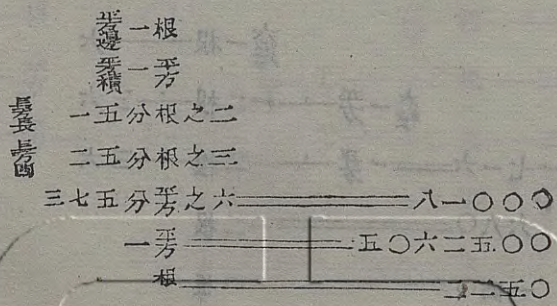 平方邊 一根
平方積 一平方
長方長 一五分根之二
長方闊 二五分根之三
三七五分平方之六 八一〇〇〇
一平方 五〇六二五〇〇
根 二二五〇